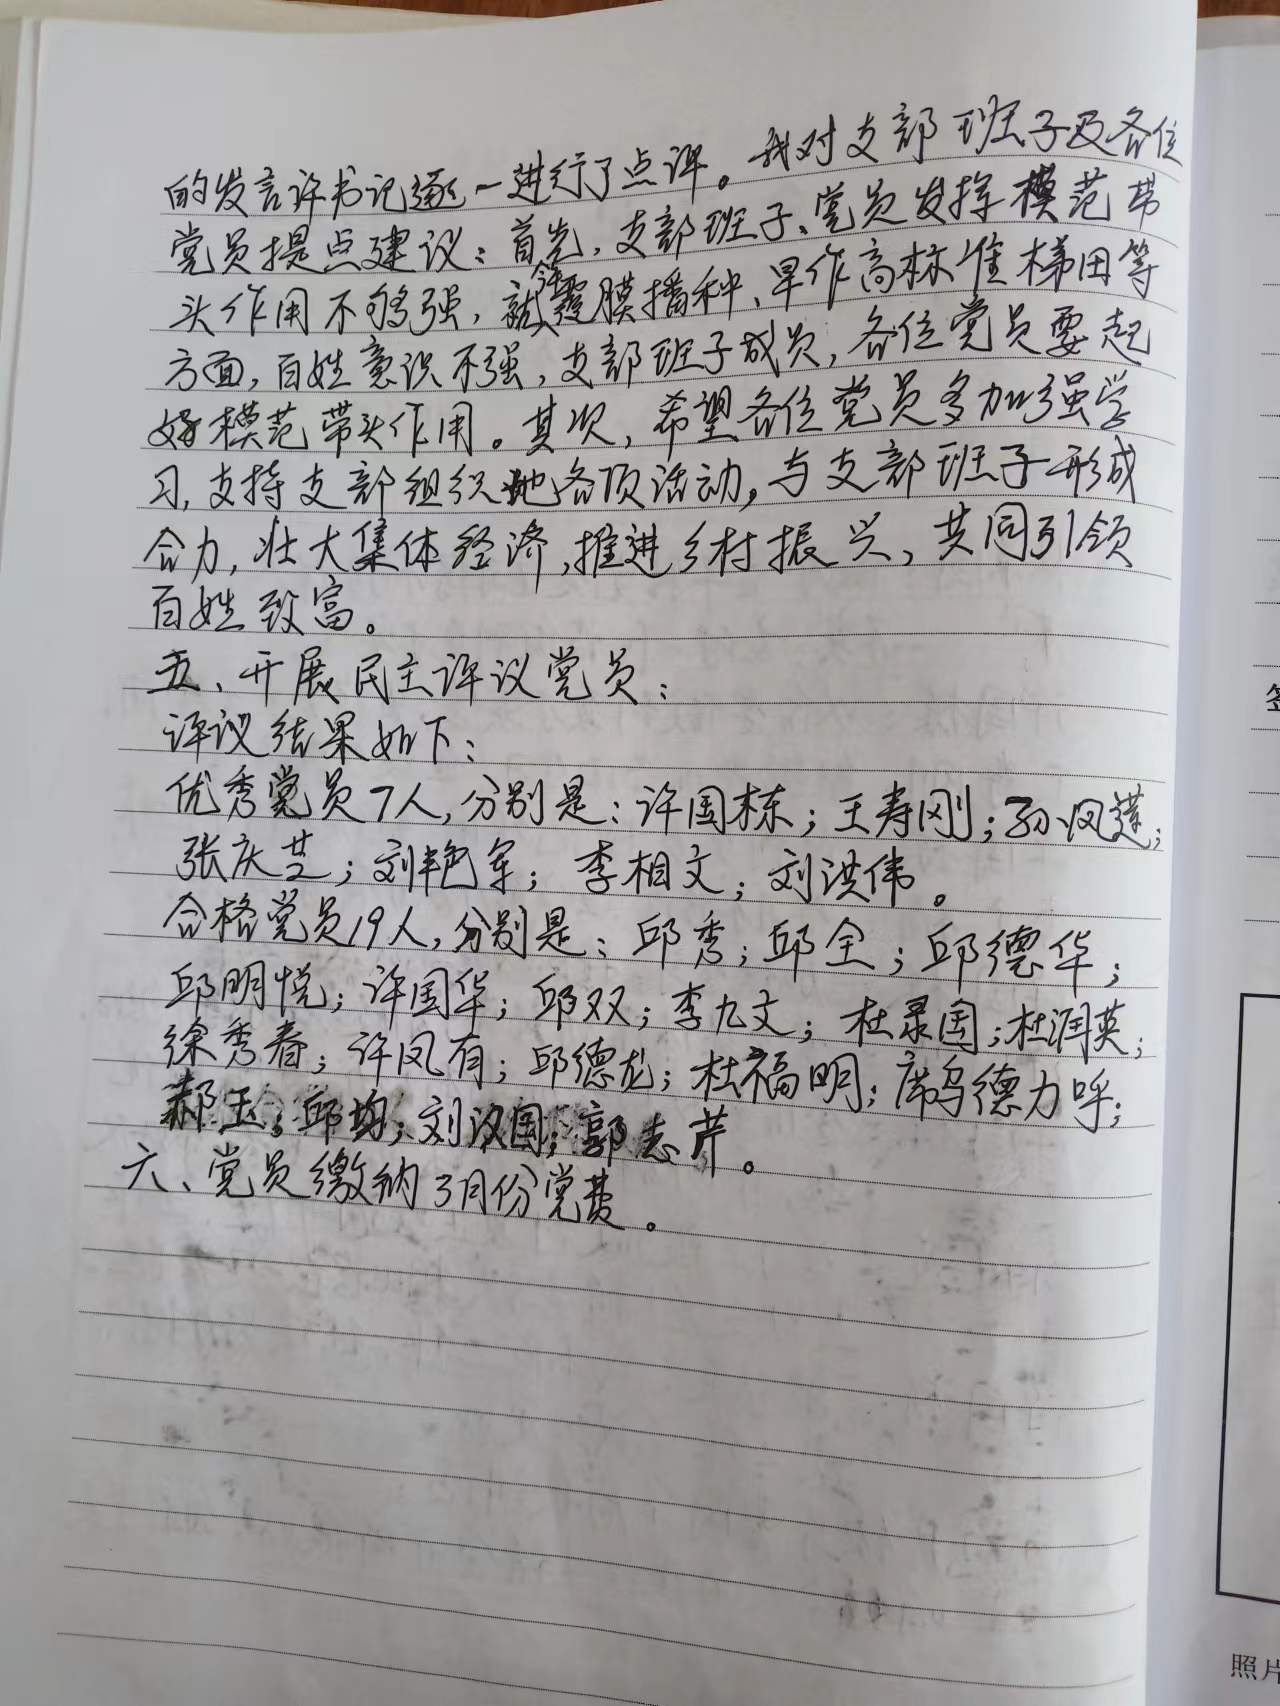 的发言许书记逐一进行了点评。我对支部班子及各位
党员提点建议：首先，支部班子、党员发挥模范带
头作用不够强，就今年覆膜播种、旱作高标准梯田等
方面，百姓意识不强，支部班子成员，各位党员要起
好模范带头作用。其次，希望各位党员多加强学
习，支持支部组织地各项活动，与支部班子形成
合力，壮大集体经济，推进乡村振兴，共同引领
百姓致富。
五、开展民主评议党员：
评议结果如下：
优秀党员7人，分别是：许国栋；王寿刚；孙凤莲；
张庆芝；刘艳军；李相文；刘洪伟。
合格党员19人，分别是：邱秀；邱全；邱德华；
邱明悦；许国华；邱双；李九文；杜录国；杜润英；
徐秀春；许凤有；邱德龙；杜福明；席乌德力呼；
郝玉；邱均；刘汉国；郭志芹。
六、党员缴纳3月份党费。
照片